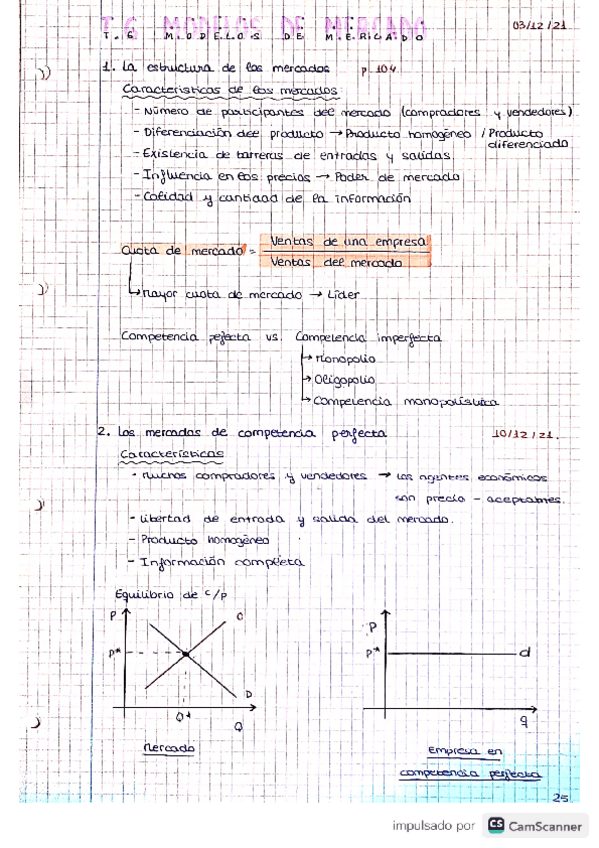 T.6 MODELOS DE MERCADO
03/12/21
1. La estructura de los mercados p. 104
Características de los mercados
- Número de participantes del mercado (compradores y vendedores)
- Diferenciación del producto → Producto homogéneo / Producto
diferenciado
- Existencia de barreras de entradas y salidas
- Influencia en los precios → Poder de mercado
- Calidad y cantidad de la información
Cuota de mercado = Ventas de una empresa
Ventas del mercado
↳ Mayor cuota de mercado → Líder
Competencia pefecta vs. Competencia imperfecta
↳ Monopolio
↳ Oligopolio
↳ Competencia monopolística
2. Los mercados de competencia perfecta 10/12/21.
Características
- Muchos compradores y vendedores → Los agentes económicos
son precio - aceptantes.
- Libertad de entrada y salida del mercado.
- Producto homogéneo
- Información completa
Equilibrio de C/P
P O
P* D
Q* Q
Mercado
P
P* d
q
Empresa en
competencia perfecta
25
impulsado por CS CamScanner